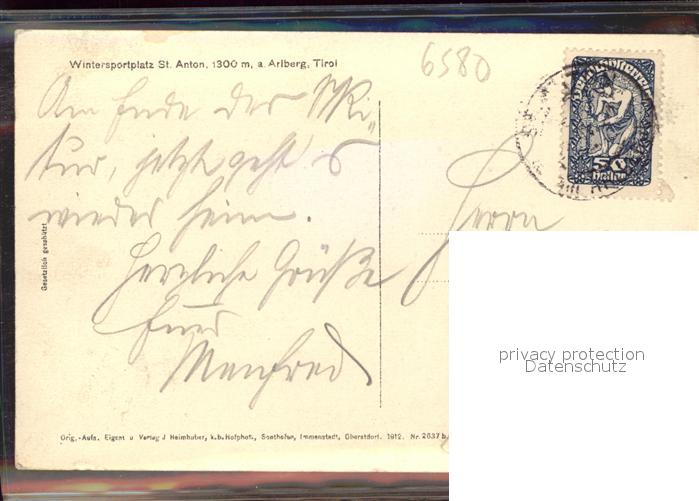 Wintersportplatz St. Anton, 1300 m, a. Arlberg, Tirol
6580
Am Ende der Ski-
tur, jetzt geht's
wieder heim.
Herzliche Grüße
Euer
Manfred
Herrn
50
Heller
Gesetzlich geschützt
privacy protection
Datenschutz
Orig.-Aufn. Eigent u Verlag J Heimhuber, k.b.Hofphot., Sonthofen, Immenstadt, Oberstdorf. 1912. Nr. 2637b.